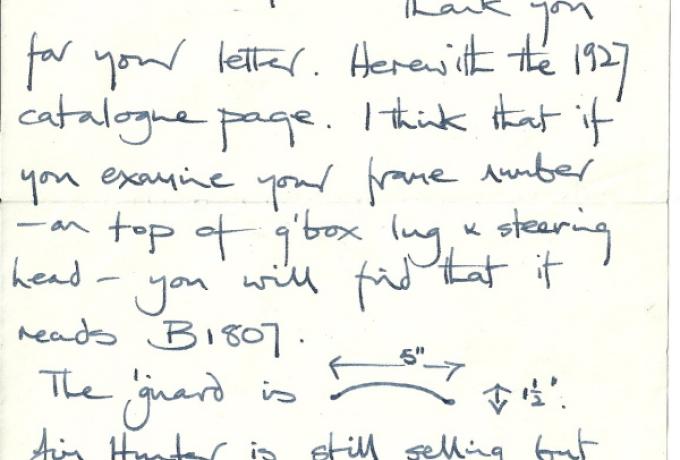 Thank you
for your letter. Herewith the 1927
catalogue page. I think that if
you examine your frame number
—on top of g'box lug & steering
head — you will find that it
reads B1807.
The 'guard is 5" 1½".
Jim Hunter is still selling but